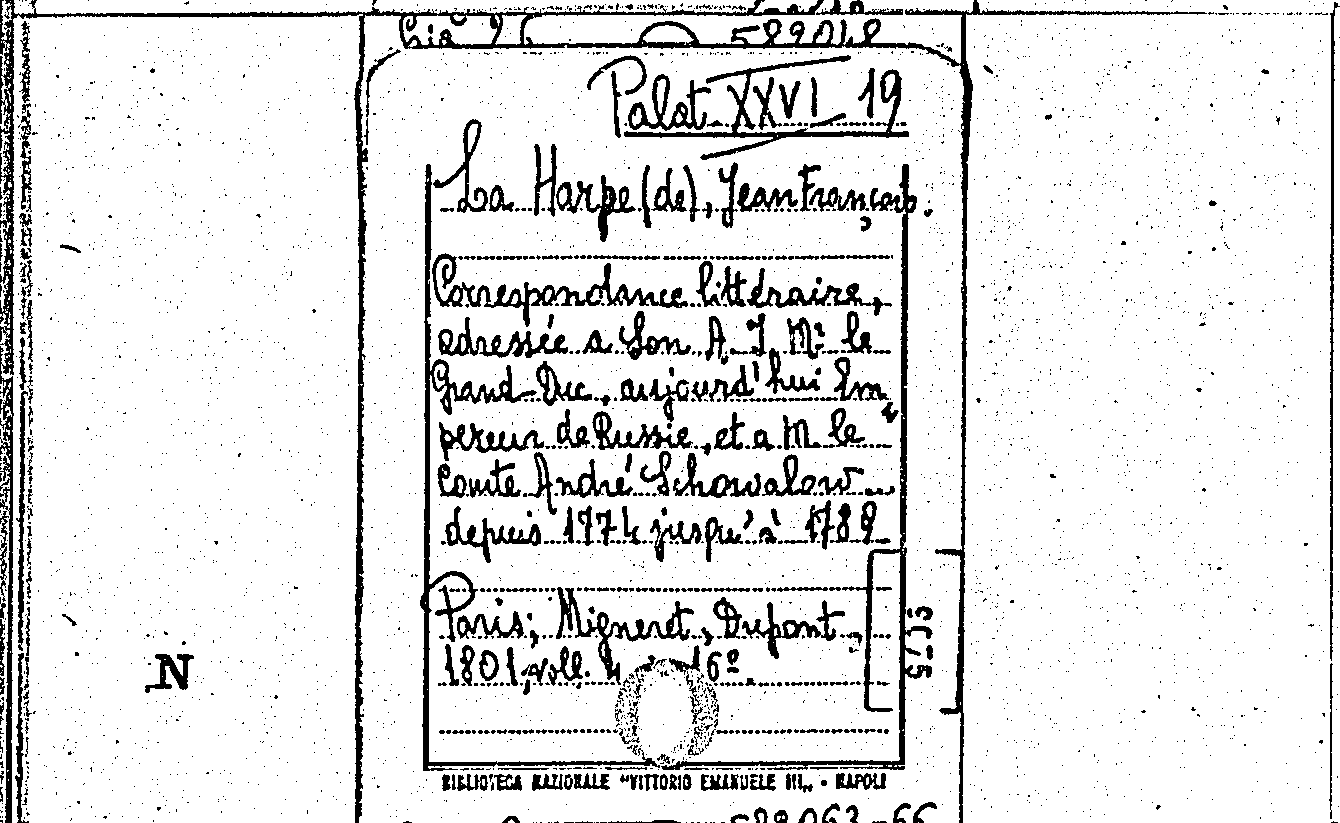 589048
Palat. XXVI 19
La Harpe (de), Jean François.
Correspondance littéraire,
adressée a Son A. I. Mr le
Grand-Duc, aujourd'hui Em
pereur de Russie, et a M. le
Comte André Schowalow...
depuis 1774 jusqu'à 1789
Paris; Migneret, Dupont,
1801, voll. 4 16º.
N
BIBLIOTECA NAZIONALE "VITTORIO EMANUELE III„ - NAPOLI
589063-66